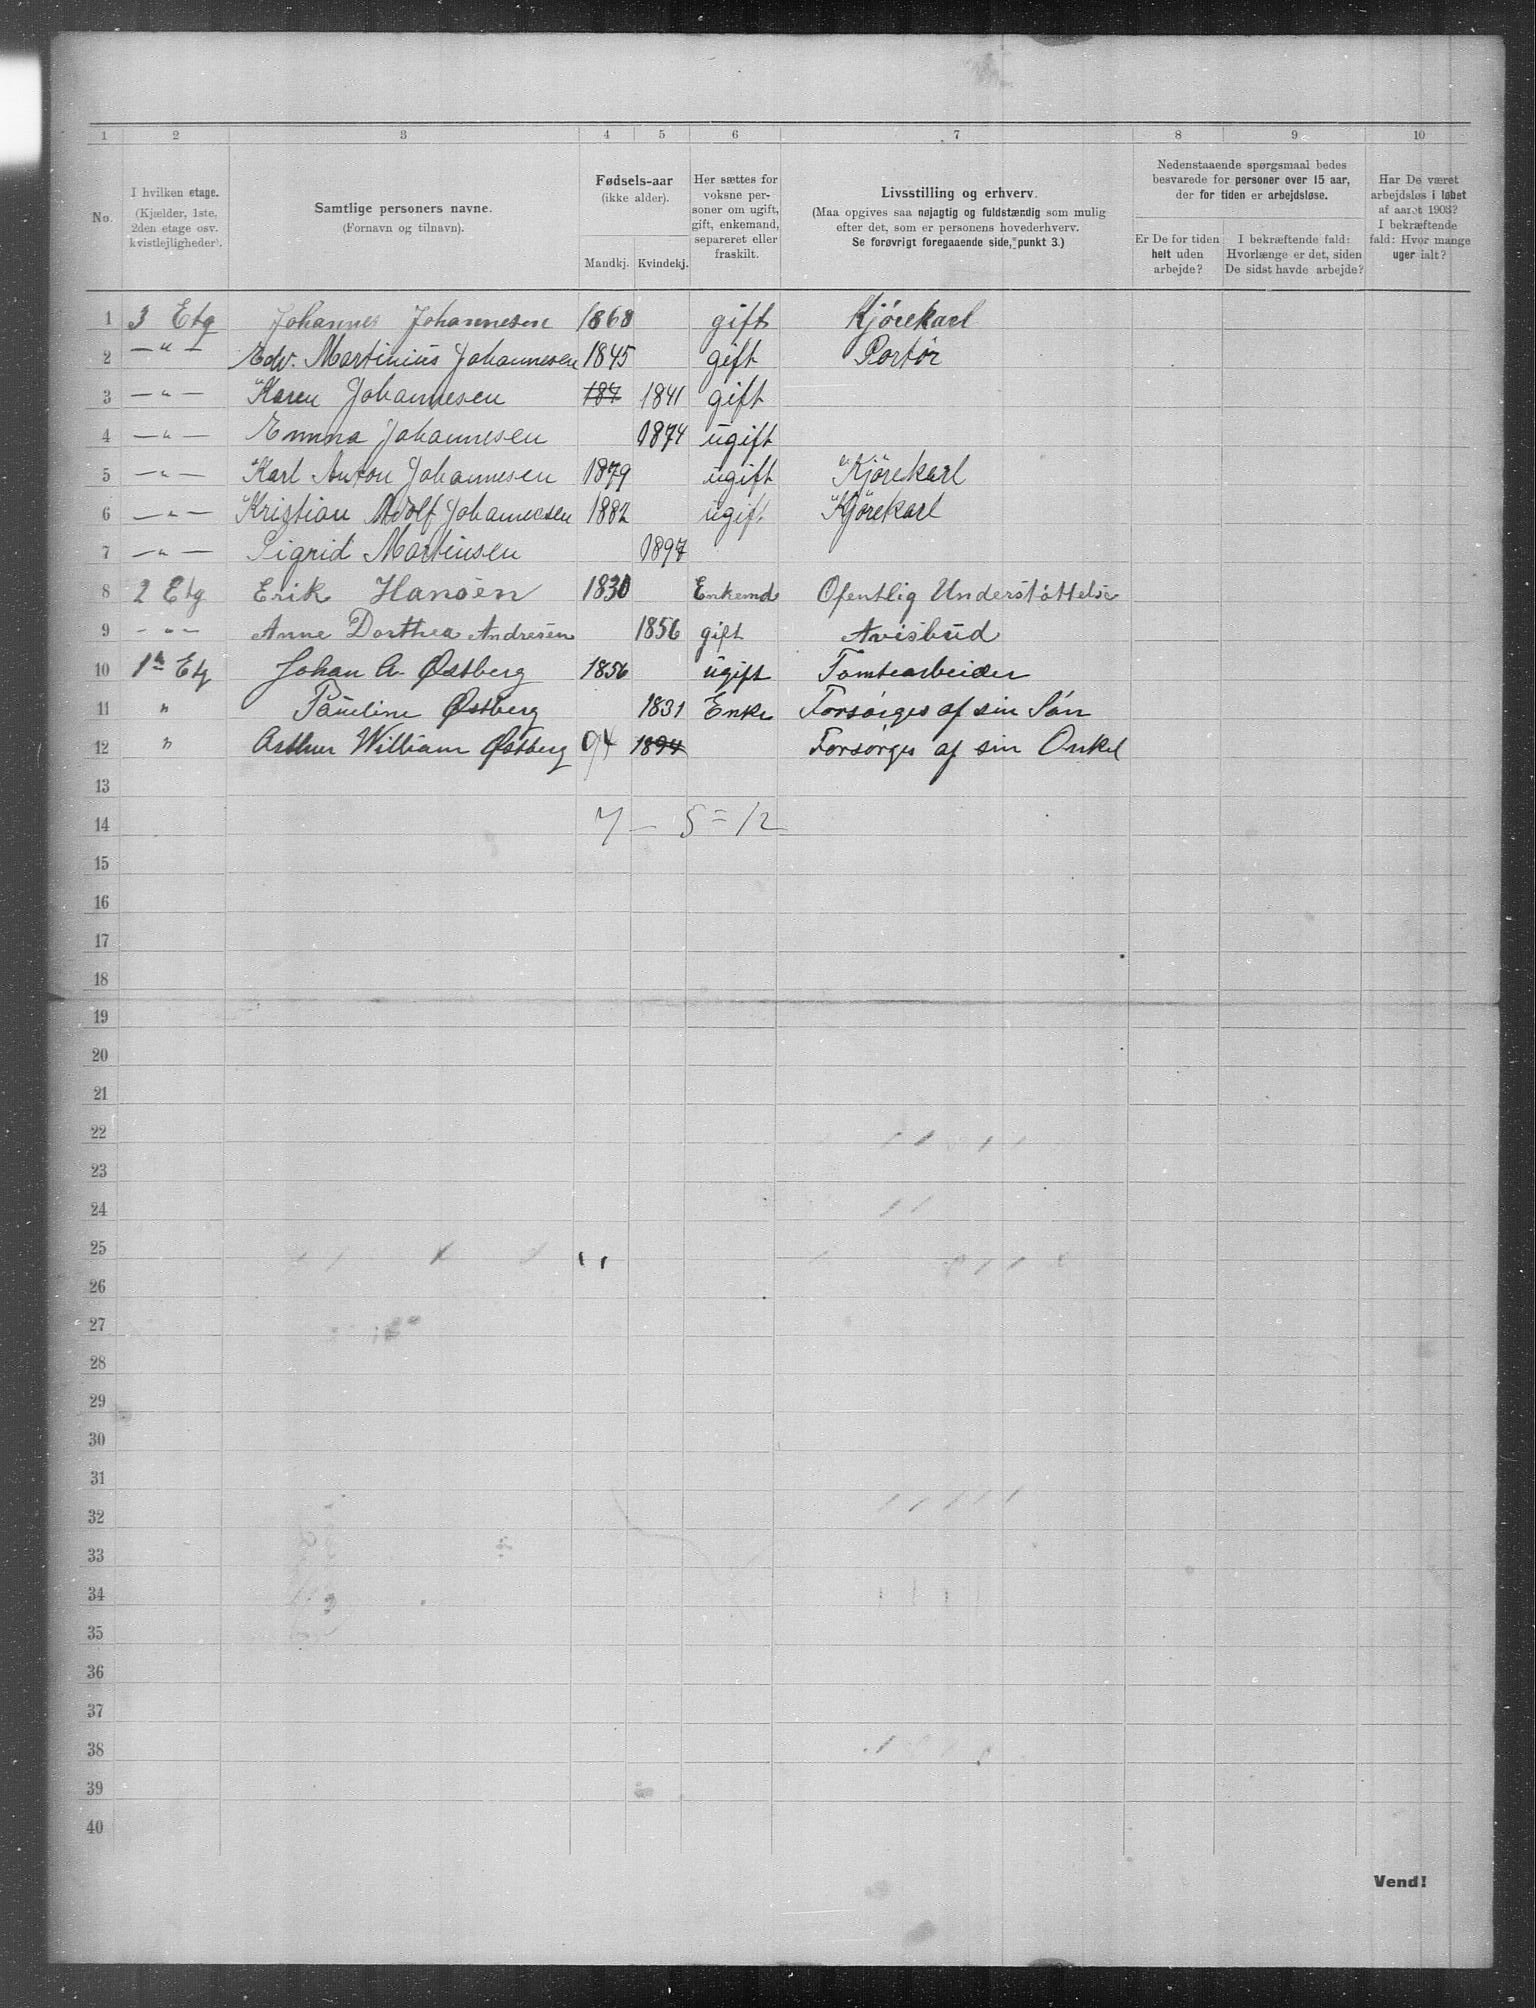 1 2 3 4 5 6 7 8 9 10
No.
I hvilken etage.
(Kjælder, 1ste,
2den etage osv.
kvistlejligheder).
Samtlige personers navne.
(Fornavn og tilnavn).
Fødsels-aar
(ikke alder).
Mandkj. Kvindekj.
Her sættes for
voksne per-
soner om ugift,
gift, enkemand,
separeret eller
fraskilt.
Livsstilling og erhverv.
(Maa opgives saa nøjagtig og fuldstændig som mulig
efter det, som er personens hovederhverv.
Se forøvrigt foregaaende side, punkt 3.)
Nedenstaaende spørgsmaal bedes
besvarede for personer over 15 aar,
der for tiden er arbejdsløse.
Er De for tiden
helt uden
arbejde?
I bekræftende fald:
Hvorlænge er det, siden
De sidst havde arbejde?
Har De været
arbejdsløs i løbet
af aaret 1903?
I bekræftende
fald: Hvor mange
uger ialt?
1 3 Etg Johannes Johannesen 1868 gift Kjørekarl
2 — " — Edv. Martinius Johannesen 1845 gift Portør
3 — " — Karen Johannesen 187 1841 gift
4 — " — Emma Johannesen 1874 ugift
5 — " — Karl Anton Johannesen 1879 ugift Kjørekarl
6 — " — Kristian Adolf Johannesen 1882 ugift Kjørekarl
7 — " — Sigrid Martinsen 1897
8 2 Etg Erik Hansen 1830 Enkemd Ofentlig Understøttelse
9 — " — Anne Dorthea Andresen 1856 gift Avisbud
10 1ste Etg Johan A. Østberg 1856 ugift Tomtearbeider
11 " Pauline Østberg 1831 Enke Forsørges af sin Søn
12 " Arthur William Østberg 94 1894 Forsørges af sin Onkel
13
14 7 — 5 = 12
15
16
17
18
19
20
21
22
23
24
25
26
27
28
29
30
31
32
33
34
35
36
37
38
39
40
Vend!